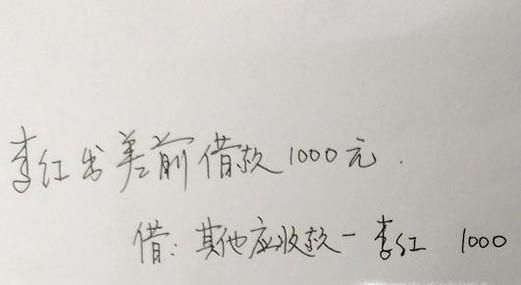 李红出差前借款1000元.
借:其他应收款-李红 1000